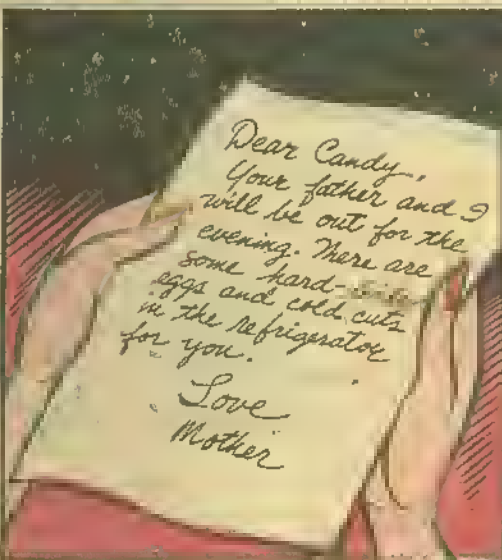 Dear Candy,
Your father and I
will be out for the
evening. There are
some hard-
eggs and cold cuts
in the refrigerator
for you.
Love
Mother